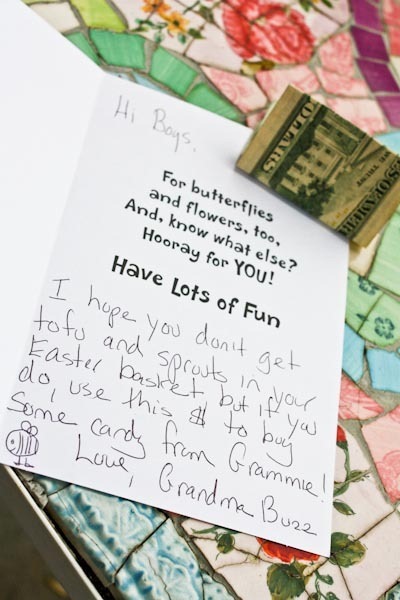 Hi Boys,
For butterflies
and flowers, too,
And, know what else?
Hooray for YOU!
Have Lots of Fun
I hope you don't get
tofu and sprouts in your
Easter basket, but if you
do, use this $ to buy
some candy from Grammie!
Love, Grandma Buzz
DOLLARS